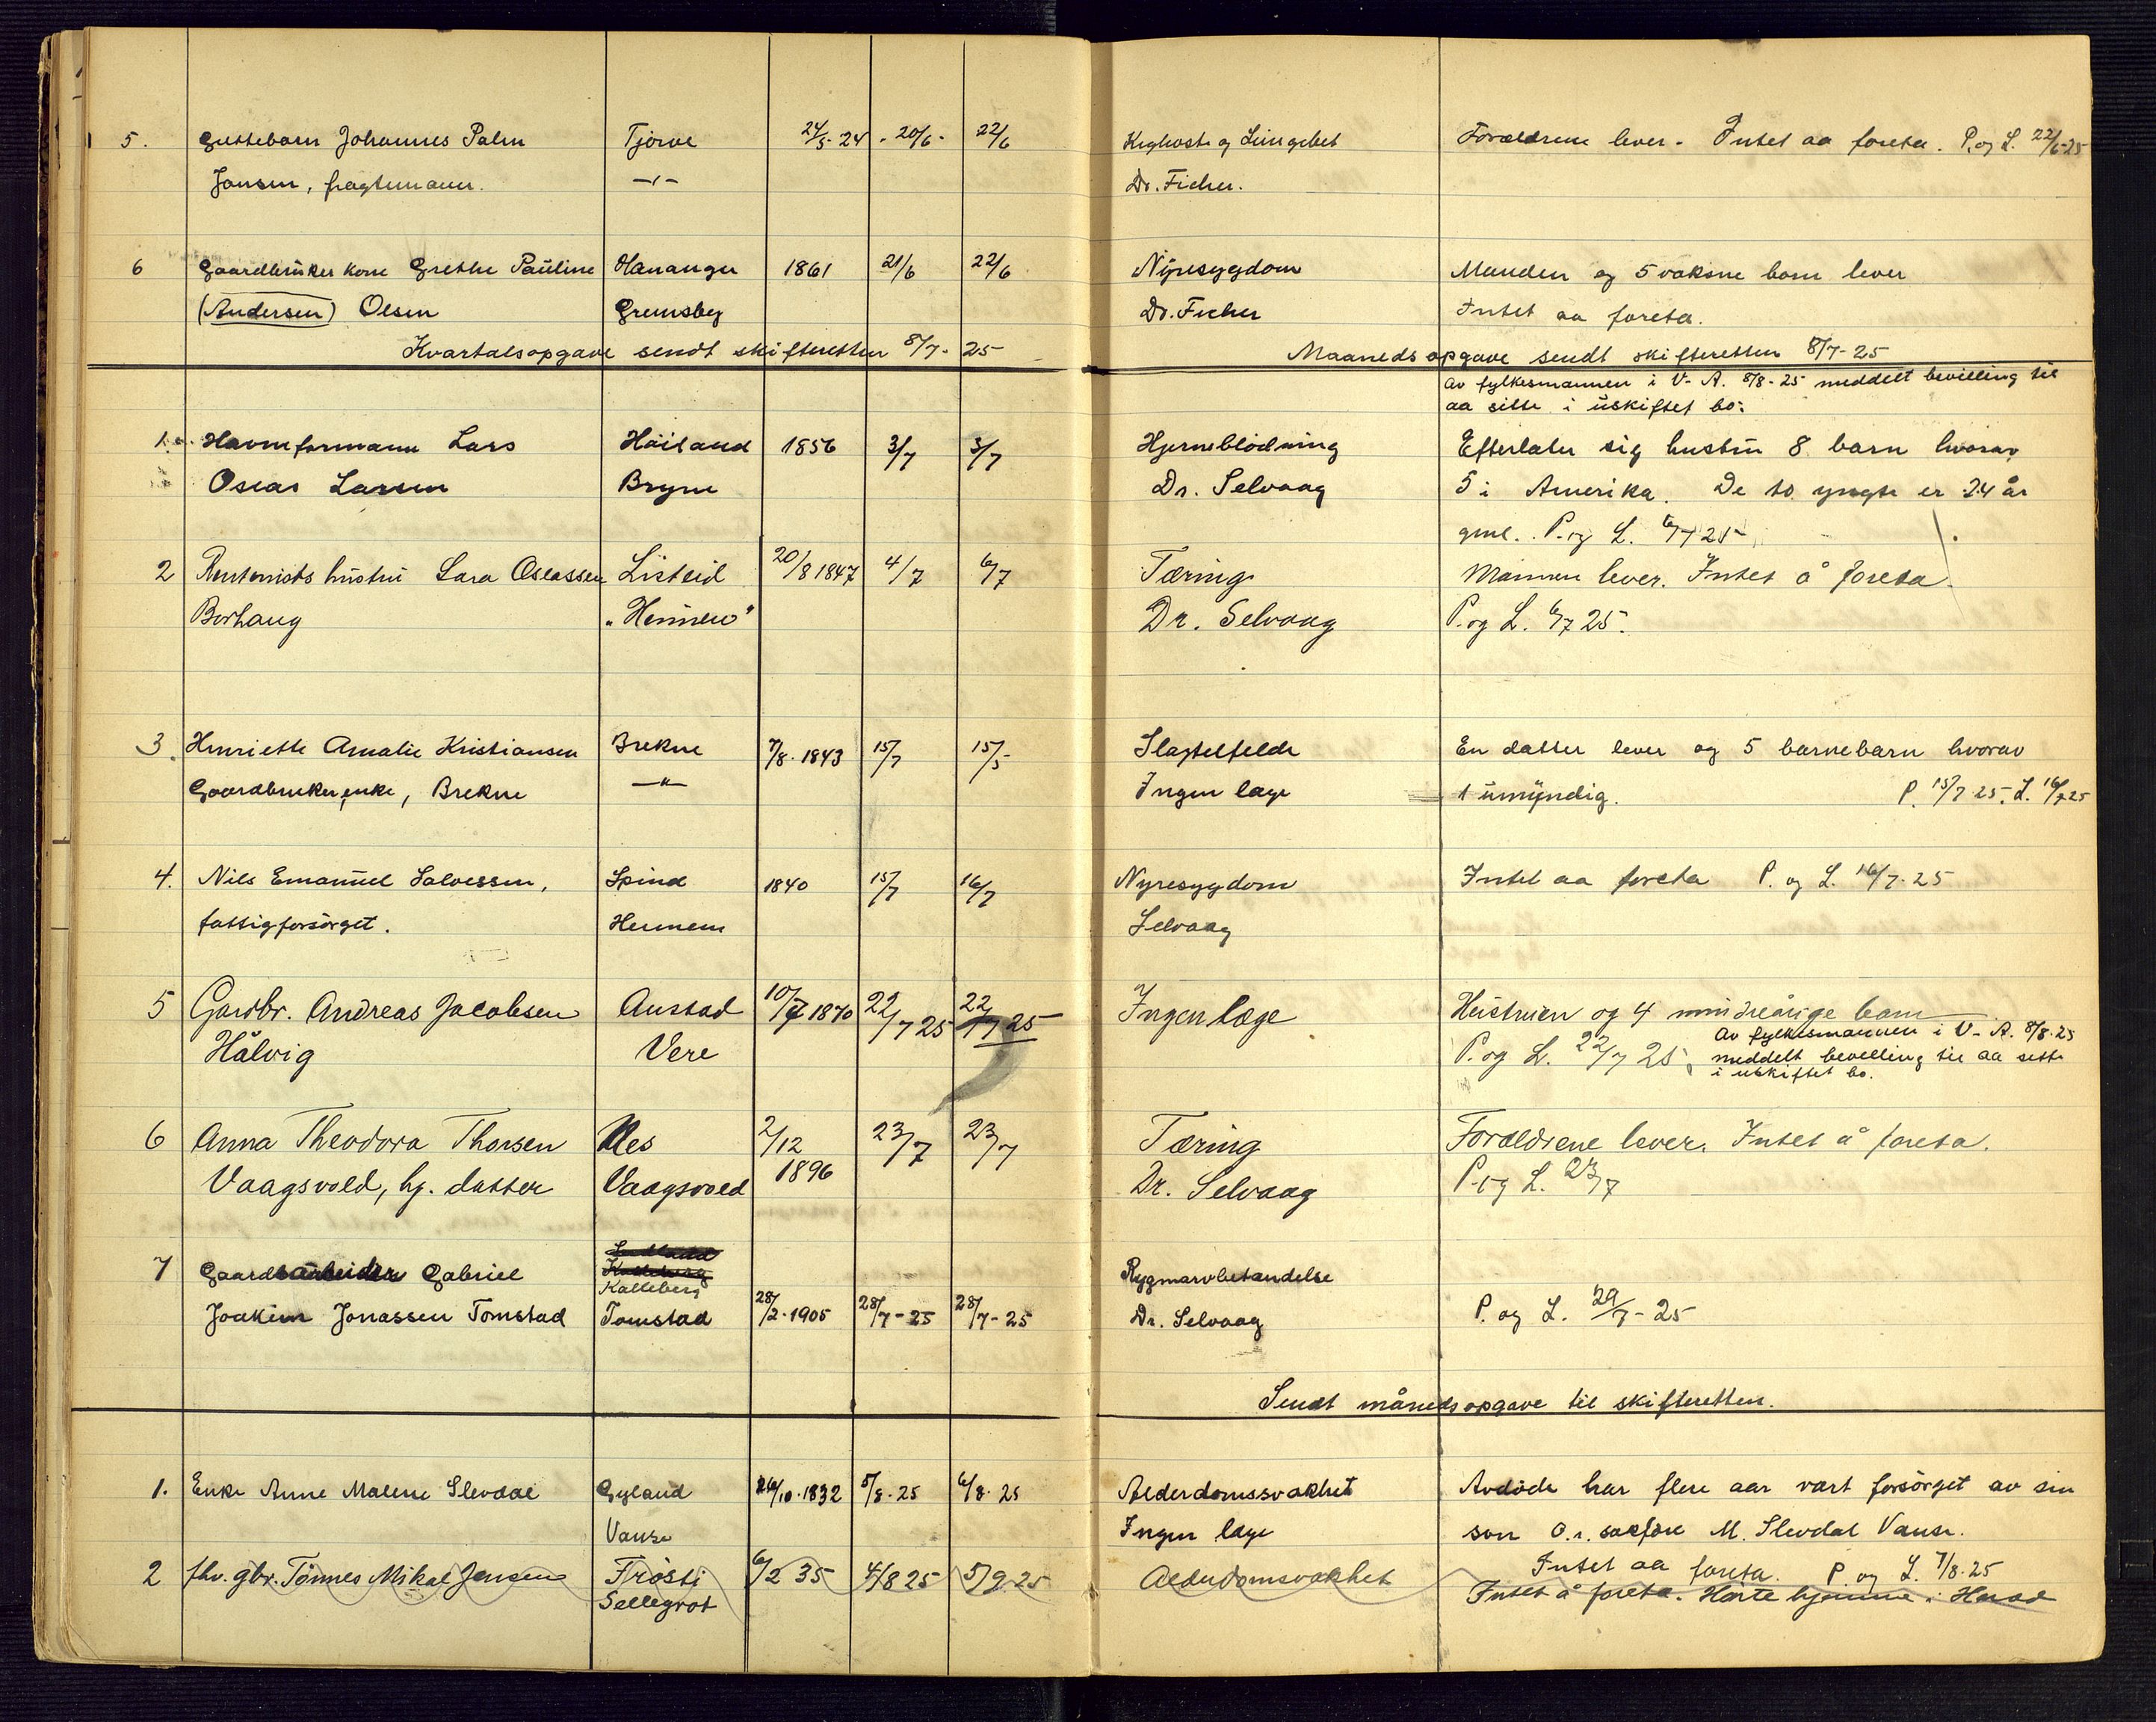 5. Guttebarn Johannes Palm Tjørve 24/5-24 - 20/6 - 22/6 Kighoste og Lungebet Forældrene lever - Intet aa foreta. P. og L. 22/6-25
Jansen, fragtemann. -"- Dr. Ficher.
6 Gaardbruker kone Grethe Pauline Hananger 1861 21/6 22/6 Nyresygdom Manden og 5 voksne barn lever
(Andersen) Olsen Gremsby Dr. Ficher Intet aa foreta.
Kvartalsopgave sendt skifteretten 8/7-25 Maanedsopgave sendt skifteretten 8/7-25
Av fylkesmannen i V-A. 8/8-25 meddelt bevilling til
aa sitte i uskiftet bo.
1. Havneformann Lars Høiland 1856 3/7 3/7 Hjerneblødning Efterlater sig hustru 8 barn hvorav
Oseas Larsen Bryne Dr. Selvaag 5 i Amerika. De to yngste er 24 år
gml. P. og L. 6/7 25
2 Rentenists hustru Sara Oseassen Listeid 20/8 1847 4/7 6/7 Tæring Mannen lever. Intet å foreta.
Borhaug Dr. Selvaag P. og L. 6/7 25.
3. Henriette Amalie Kristiansen Brekne 7/8-1843 15/7 15/7 Slagtilfelde En datter lever og 5 barnebarn hvorav
Gaardbrukerenke, Brekne -"- Ingen læge 1 umyndig. P. 15/7 25. L. 16/7 25
4. Nils Emanuel Salvessen, Spind 1840 15/7 16/7 Nyresygdom Intet aa foreta P. og L. 16/7-25
fattigforsørget. Selvaag
5 Gardbr. Andreas Jacobsen Austad 10/7 1870 22/7 25 22/7 25 Ingen læge Hustruen og 4 mindreårige barn
Hålvig Vere P. og L. 22/7 25. Av fylkesmannen i V-A. 8/8-25
meddelt bevilling til aa sitte
i uskiftet bo.
6 Anna Theodora Thorsen Nes 2/12 23/7 23/7 Tæring Forældrene lever. Intet å foreta.
Vaagsvold, hj. datter Vaagsvold 1896 Dr. Selvaag P. og L. 23/7
7 Gaardsarbeider Gabriel Kalleberg Rygmarvbetandelse
Joakim Jonassen Tomstad Tomstad 28/2-1905 28/7-25 28/7-25 Dr. Selvaag P. og L. 29/7-25
Sendt månedsopgave til skifteretten.
1. Enke Anne Malene Slevdal Gyland 26/10-1832 5/8-25 6/8-25 Alderdomssvakhet Avdøde har flere aar vært forsørget av sin
Vanse Ingen læge søn o.r. sakføre M. Slevdal Vanse.
Intet aa foreta. P. og L. 7/8-25
2 fhv. gbr. Tønnes Mikal Jensen Frøsti 6/2 35 4/8 25 5/9 25 Alderdomsvakhet Intet å foreta. Hørte hjemme i Herad
Sellegrot